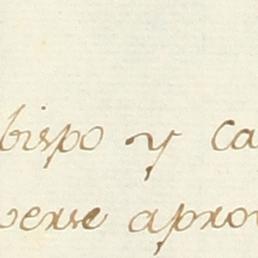 bispo y ca
verse apro